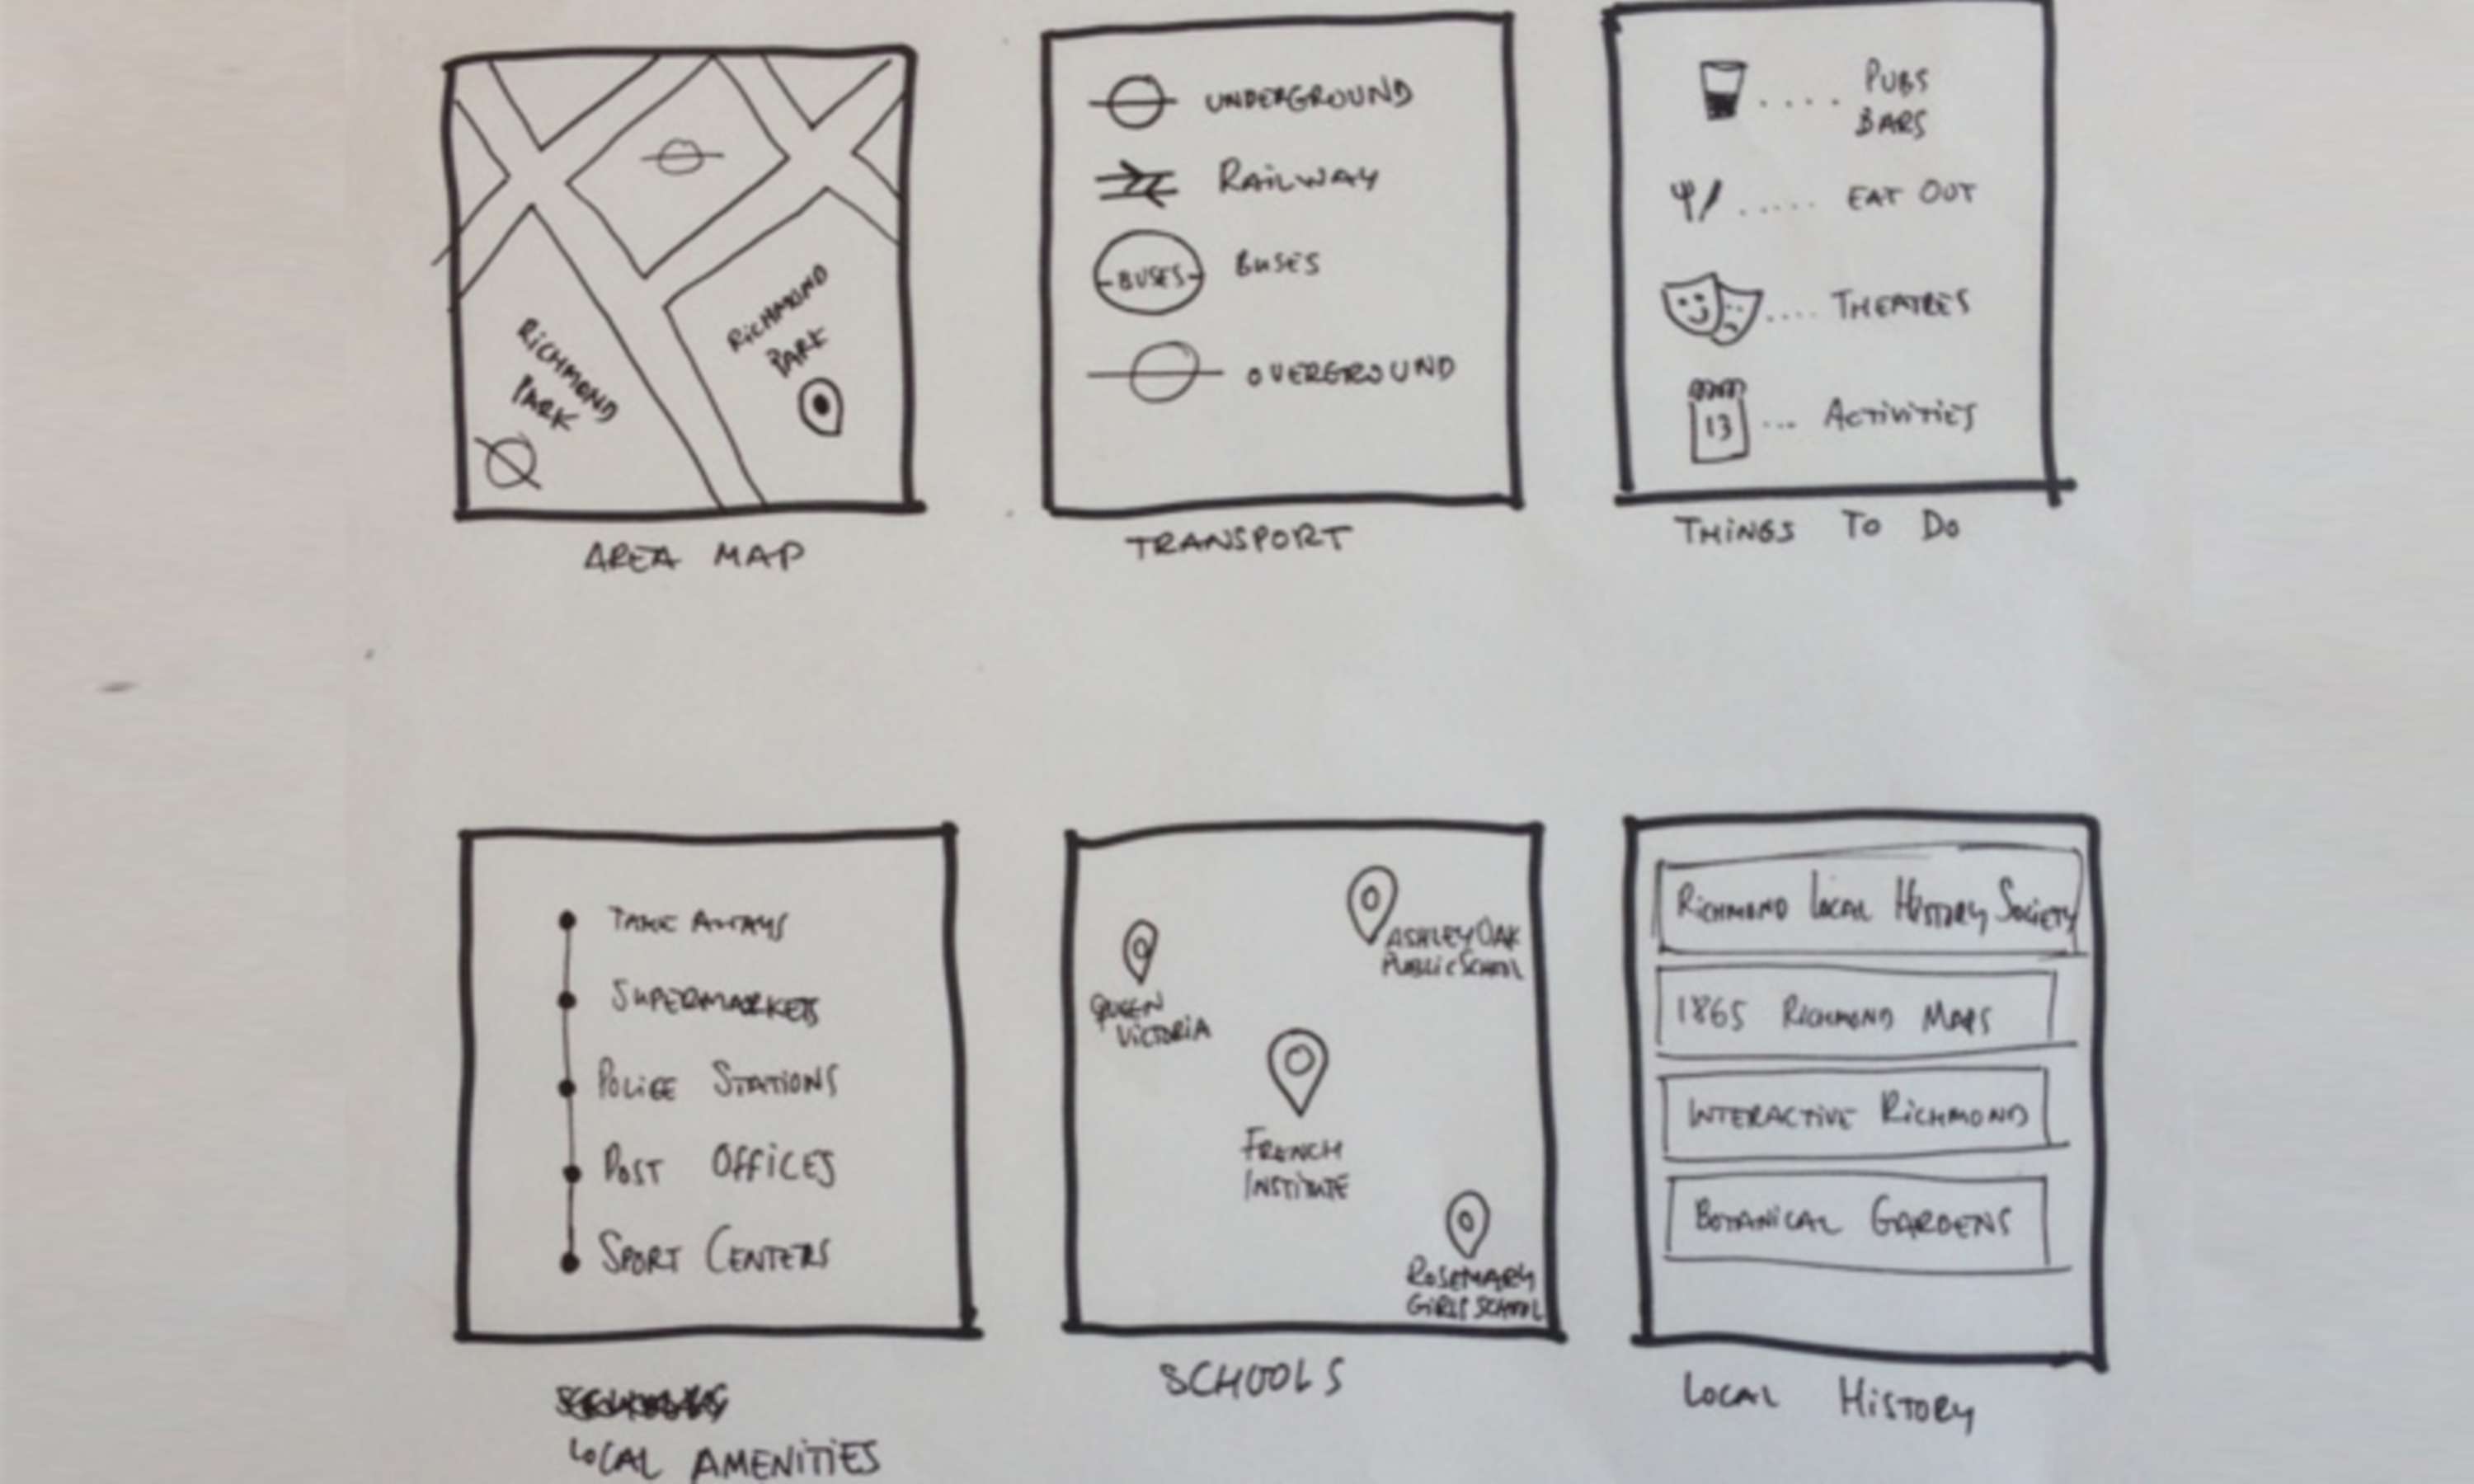 RICHMOND
PARK
RICHMOND
PARK
AREA MAP
UNDERGROUND
RAILWAY
BUSES BUSES
OVERGROUND
TRANSPORT
PUBS
BARS
EAT OUT
THEATRES
13 ACTIVITIES
THINGS TO DO
TAKE AWAYS
SUPERMARKETS
POLICE STATIONS
POST OFFICES
SPORT CENTERS
LOCAL AMENITIES
ASHLEY OAK
PUBLIC SCHOOL
QUEEN
VICTORIA
FRENCH
INSTITUTE
ROSEMARY
GIRLS SCHOOL
SCHOOLS
RICHMOND LOCAL HISTORY SOCIETY
1865 RICHMOND MAPS
INTERACTIVE RICHMOND
BOTANICAL GARDENS
LOCAL HISTORY